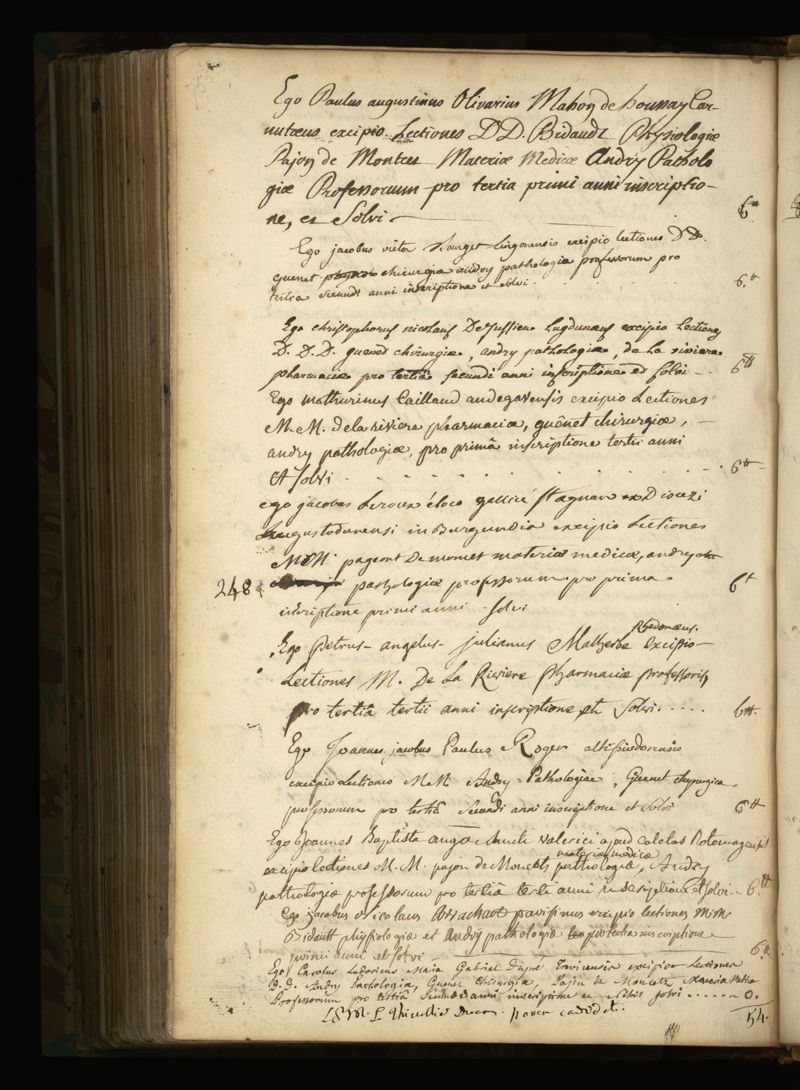 Ego Paulus augustinus Olivarius Mahon de houssay Car-
nutæus excipio Lectiones D D. Bidault Physiologiæ
Pajon de Montcets Materiæ Medicæ Andry Patholo
giæ Professorum pro tertia primi anni inscriptio-
ne, et Solvi 6 ₶
Ego jacobus victor Bourget Lingonensis excipio lectiones D D.
guenet chirurgiæ andry pathologiæ professorum pro
tertia secundi anni inscriptione et solvi. 6.₶
Ego christophorus nicolaus De jussieu Lugdunæus excipio Lectiones
D. D. D. guenet chirurgiæ, andry pathologiæ, de La riviere
pharmaciæ pro tertiâ secundi anni inscriptione et solvi - 6₶
Ego mathurinus Caillaud andegavensis excipio Lectiones
M. M. de la riviere pharmaciæ, guênet chirurgiæ,
andry pathologiæ, pro primâ inscriptione tertii anni
et solvi 6₶
ego jacobus Leroux é loco gallicé in Diocezi
augustodunensi in Burgundia excipio Lectiones
MM. pajeont De moncet materiæ medicæ, andry
248 pathologiæ professorum pro prima
inscriptione primi anni solvi 6₶
Rhedonæus.
Ego Petrus-angelus-julianus Malherbe Excipio
Lectiones M. De La Riviere Pharmaciæ professoris
pro tertiâ tertii anni inscriptione et Solvi.... 6₶.
Ego Joannes jacobus Paulus Roger altissiodorensis
excipio Lectiones M M Andry Pathologiæ, Guenet chyrurgiæ,
professorum pro tertiâ Secundi anni inscriptione et solvi 6₶
Ego Joannes Baptista Sancti Valerici apud Caletas Rotomagensis
materiæ medicæ
excipio lectiones M. M. pajon de Moncets pathologiæ, Andry
pathologiæ professorum pro tertiâ tertii anni inscriptione et solvi - 6.₶
Ego jacobus nicolaus parisinus excipio lectiones M M
Bidault physiologiæ et Andry pathologiæ pro tertia inscriptione
primi anni et solvi 6₶
Ego Carolus Ludovicus Maria Gabriel excipio Lectiones
D. D. Andry Pathologiæ, Guenet Chirurgiæ, Pajon de Moncets Materiæ Medicæ
Professorum pro tertiâ Secundi anni inscriptione et nihil solvi ...... 0.
Thieullier Decan. 54.